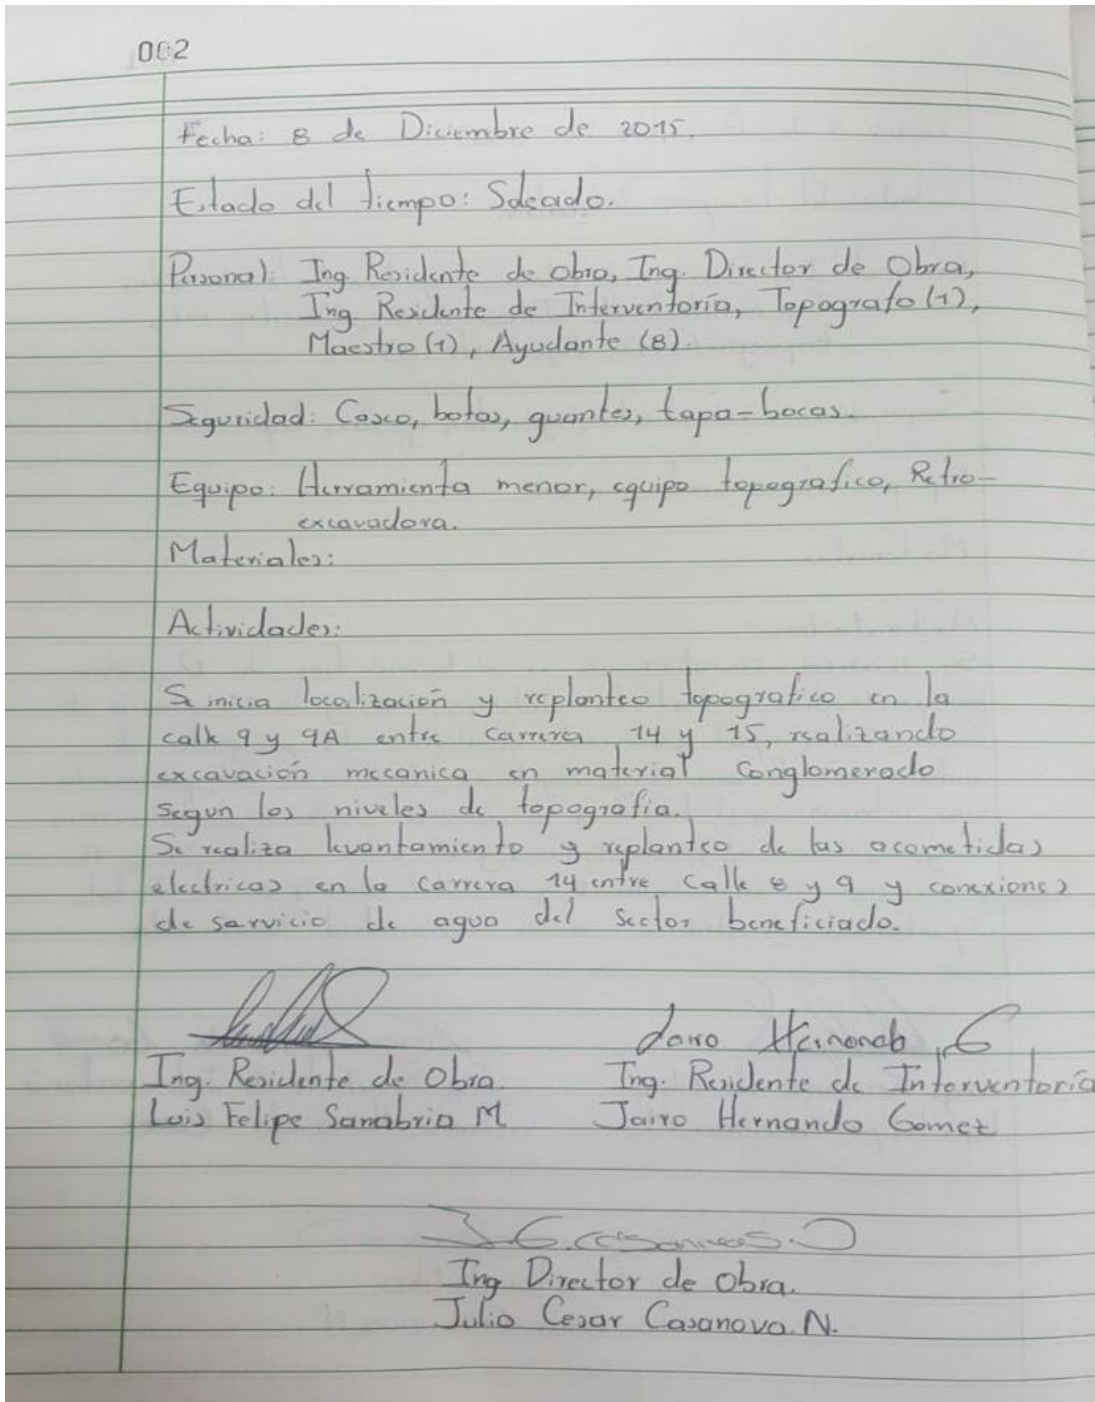 002
Fecha: 8 de Diciembre de 2015.
Estado del tiempo: Soleado.
Personal: Ing Residente de obra, Ing. Director de Obra,
Ing Residente de Interventoría, Topografo (1),
Maestro (1), Ayudante (8)
Seguridad: Casco, botas, guantes, tapa-bocas.
Equipo: Herramienta menor, equipo topografico, Retro-
excavadora.
Materiales:
Actividades:
Se inicia localización y replanteo topografico en la
calle 9 y 9A entre carrera 14 y 15, realizando
excavación mecanica en material conglomerado
segun los niveles de topografia.
Se realiza levantamiento y replanteo de las acometidas
electricas en la carrera 14 entre calle 8 y 9 y conexiones
de servicio de agua del sector beneficiado.
Jairo Hernando G
Ing. Residente de Obra. Ing. Residente de Interventoría
Luis Felipe Sanabria M Jairo Hernando Gomez
Ing Director de Obra.
Julio Cesar Casanova. N.